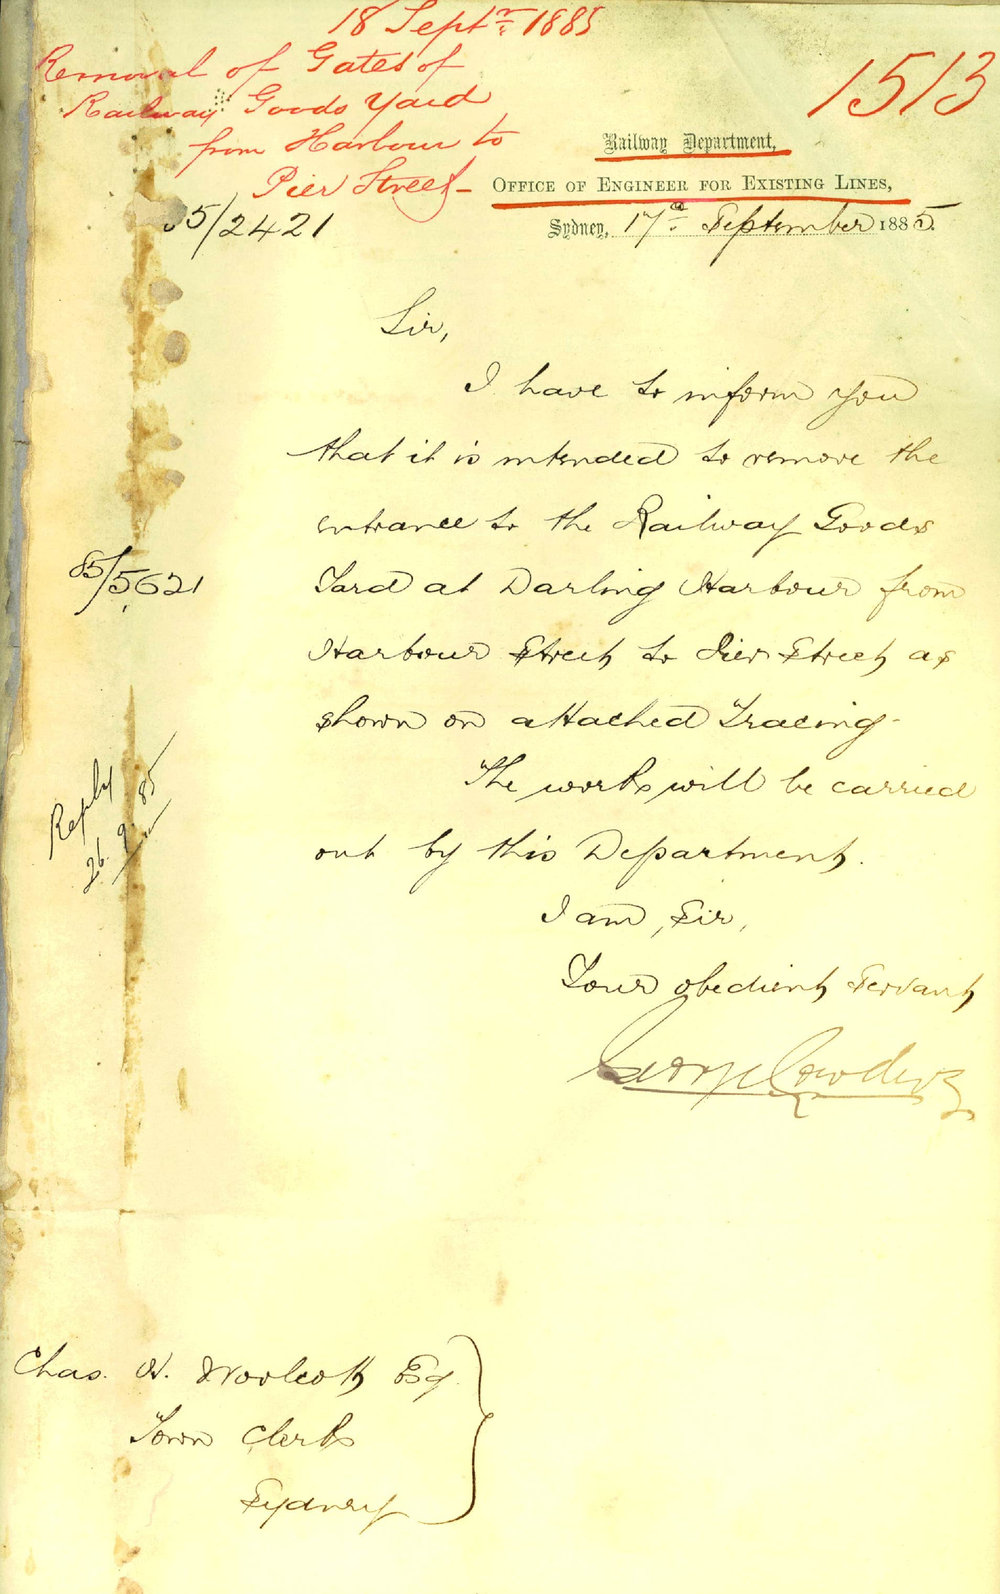 18 Septr. 1885
Removal of Gates of
Railway Goods Yard
from Harbour to
Pier Street
1513
Railway Department,
OFFICE OF ENGINEER FOR EXISTING LINES,
85/2421
Sydney, 17th September 1885.
Sir,
I have to inform you
that it is intended to remove the
entrance to the Railway Goods
Yard at Darling Harbour from
85/5621
Harbour Street to Pier Street as
shown on attached Tracing-
The works will be carried
Reply
26.9.85
out by this Department.
I am, Sir,
Your obedient Servant
George Cowdery
Chas. H. Woolcott Esq.
Town Clerk
Sydney